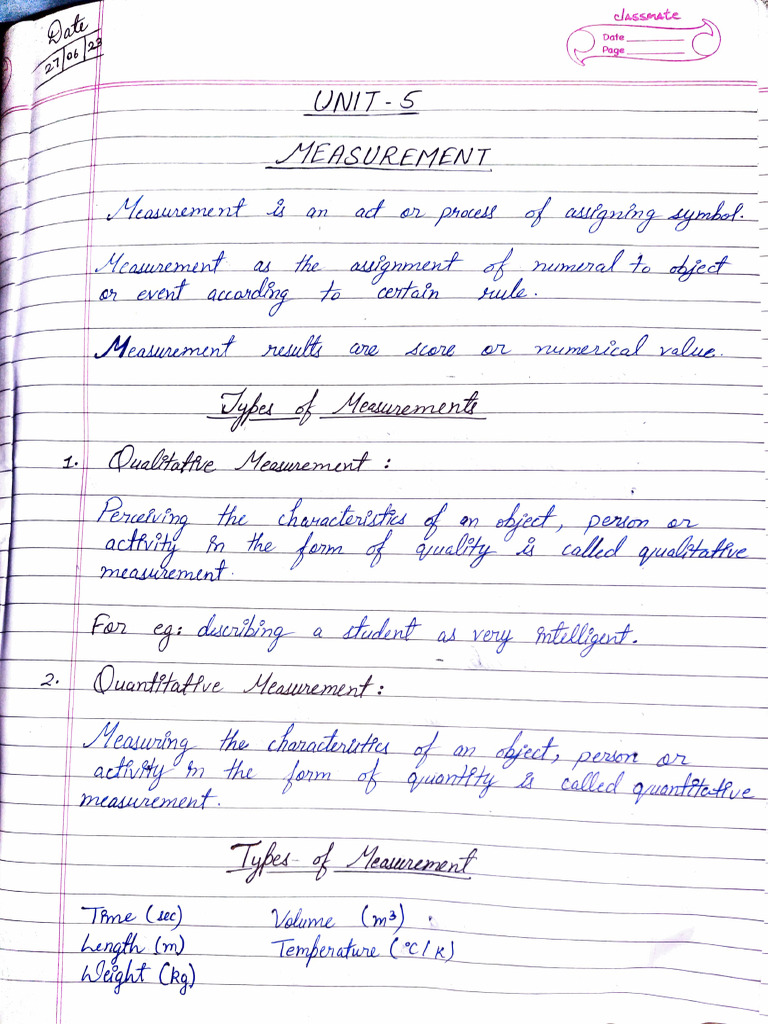 Date
27/06/23
classmate
Date
Page
UNIT-5
MEASUREMENT
Measurement is an act or process of assigning symbol.
Measurement as the assignment of numeral to object
or event according to certain rule.
Measurement results are score or numerical value.
Types of Measurements
1. Qualitative Measurement :
Perceiving the characteristics of an object, person or
activity in the form of quality is called qualitative
measurement.
For eg: describing a student as very intelligent.
2. Quantitative Measurement :
Measuring the characteristics of an object, person or
activity in the form of quantity is called quantitative
measurement.
Types of Measurement
Time (sec) Volume (m³)
Length (m) Temperature (°C/K)
Weight (kg)